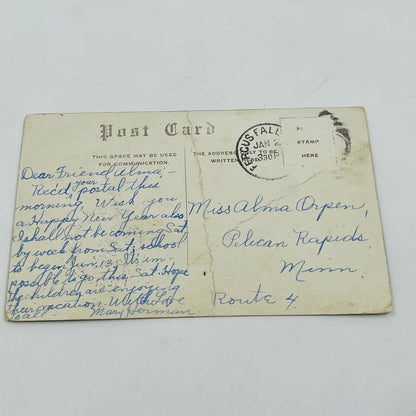 Post Card
THIS SPACE MAY BE USED
FOR COMMUNICATION.
THE ADDRESS
WRITTEN
FERGUS FALL
JAN 2
330 P
STAMP
HERE
Dear Friend Alma;-
Rec'd your postal this
morning. Wish you
a Happy New Year also
I shall not be coming Sat.
by week from Sat. school
to begin Jan. 13. It's im-
possible to go this Sat. Hope
the children are enjoying
their vacation. With Love
to all
Mary Herman
Miss Alma Orpen,
Pelican Rapids
Minn.
Route 4